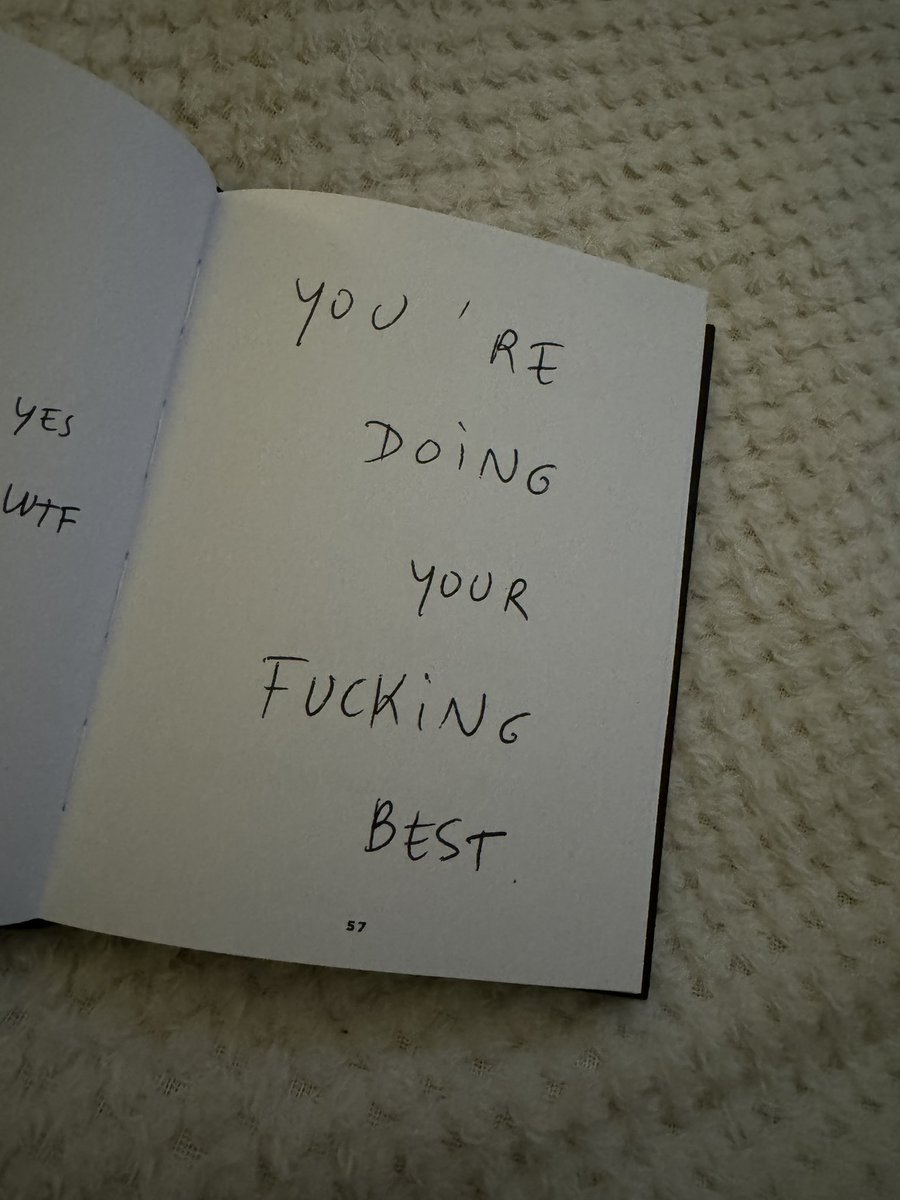 YES
WTF
YOU'RE
DOiNG
YOUR
FUCKiNG
BEST.
57